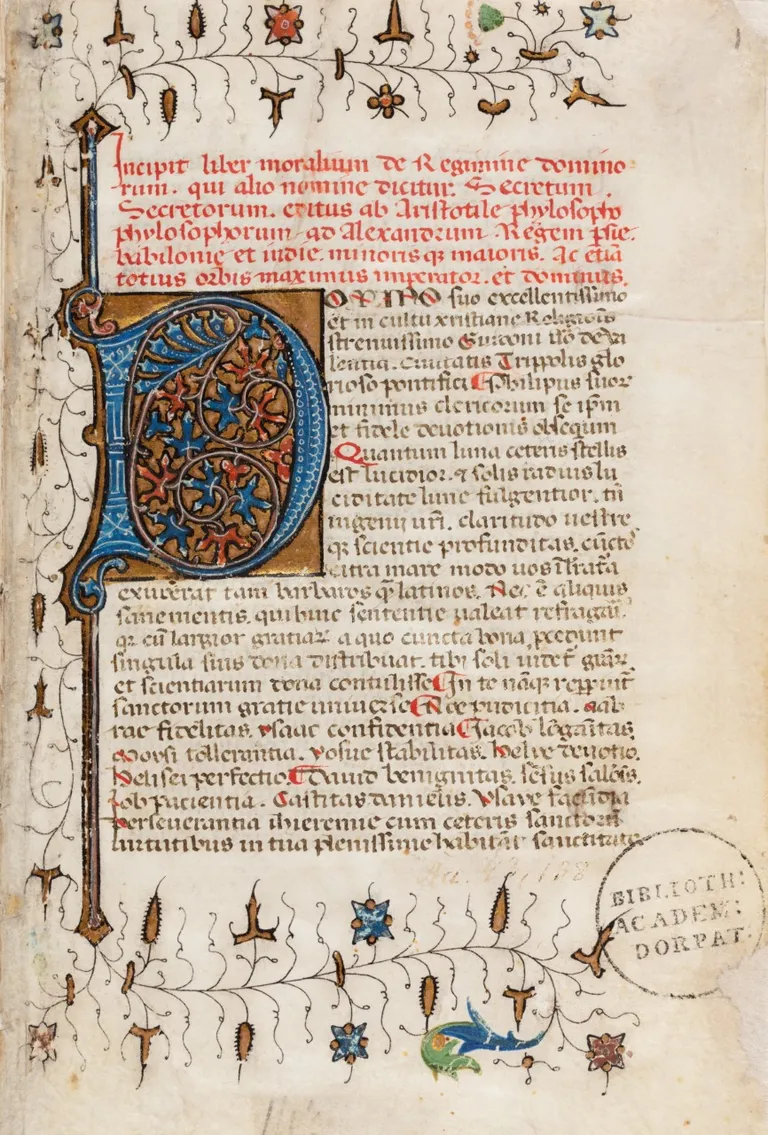 Incipit liber moralium de Regimine domino
rum. qui alio nomine dicitur. Secretum
Secretorum. editus ab Aristotile phylosopho
phylosophorum. ad Alexandrum. Regem psie.
babilonie et indie. minoris qz maioris. Ac etiā
totius orbis maximus imperator. et dominus.
DOMINO suo excellentissimo
et in cultu xristiane Religionis
strenuissimo Guidoni de va
lentia. Civitatis Trippolis glo
rioso pontifici Philipus suorꝫ
minimus clericorum se ipm̄
et fidele devotionis obsequim
Quantum luna ceteris stellis
est lucidior. et solis radius lu
ciditate lune fulgentior. tm̄
ingenii vr̄i. claritudo vestre
qz scientie profunditas. cūcto
citra mare modo vos
exuperat tam barbaros qz latinos. Nec ē aliquis
sane mentis. qui huic sententie valeat refragari.
qz cū largior gratiarꝫ a quo cuncta bona procedunt
singula suis dona distribuat. tibi soli videt gr̄arꝫ
et scientiarum dona contulisse In te nāqz repperiunt
sanctorum gratie universe Noe pudicitia. aab
rae fidelitas. ysaac confidentia Iacob lōgāitas
Moysi tollerantia. yosue stabilitas. Helye devotio.
Helisei perfectio. David benignitas. sensus salōis.
Iob pacientia. Castitas danielis. ysaye facūdia
Perseverantia iheremie cum ceteris sanctorū
virtutibus in tua plenissime habitāt sanctitate
BIBLIOTH:
ACADEM:
DORPAT.